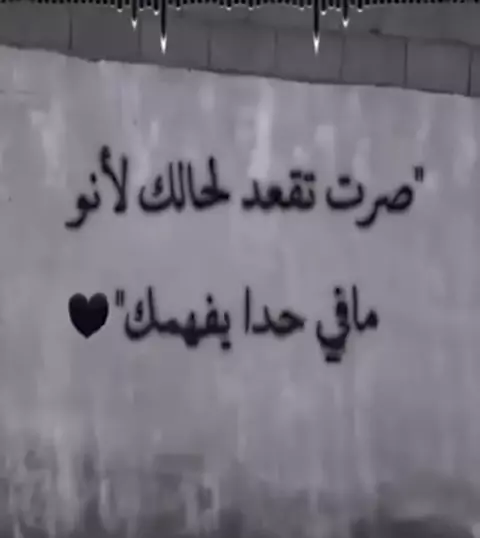 "صرت تقعد لحالك لأنو
مافي حدا يفهمك"🖤